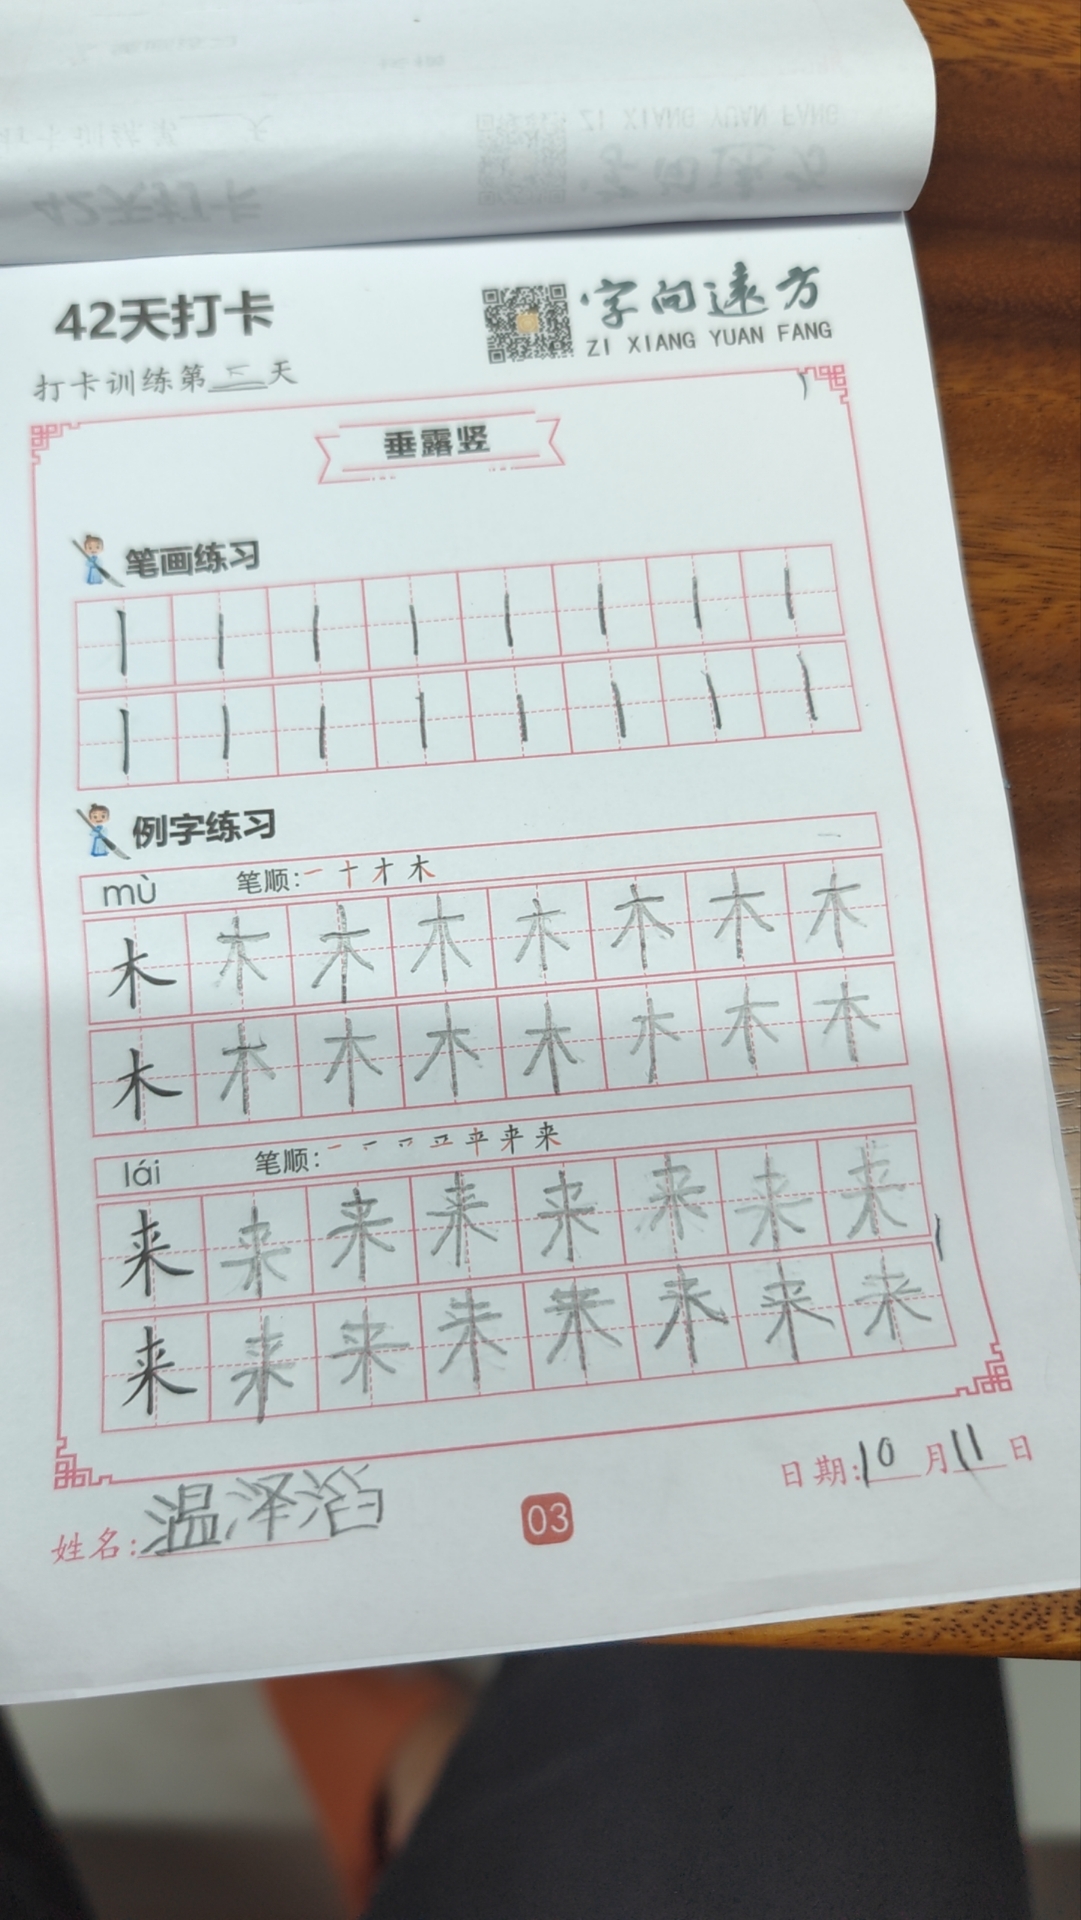 42天打卡
字向远方
ZI XIANG YUAN FANG
打卡训练第三天
垂露竖
笔画练习
丨 丨 丨 丨 丨 丨 丨 丨
丨 丨 丨 丨 丨 丨 丨 丨
例字练习
mù 笔顺:一 十 才 木
木 木 木 木 木 木 木 木
木 木 木 木 木 木 木 木
lái 笔顺:
来 来 来 来 来 来 来 来
来 来 来 来 来 来 来 来
日期:10月11日
姓名:温泽
03